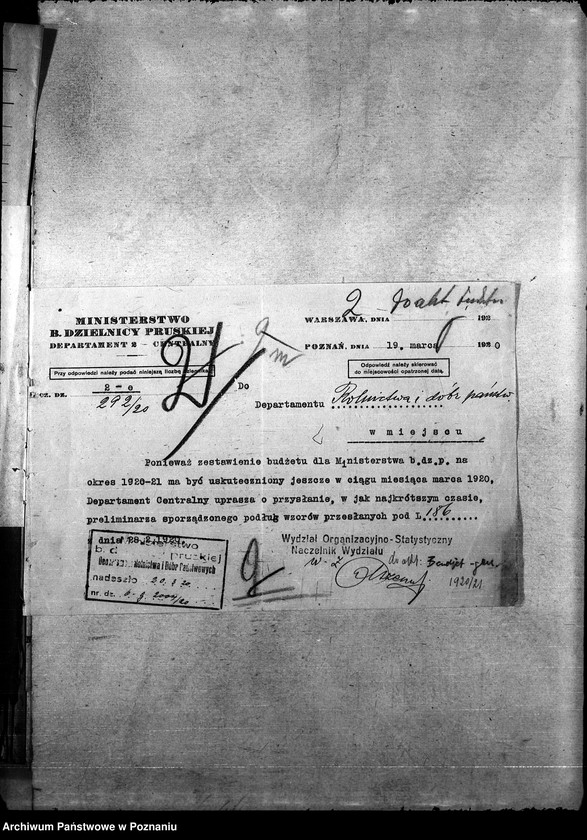 MINISTERSTWO
B. DZIELNICY PRUSKIEJ
DEPARTAMENT 2 — CENTRALNY
Przy odpowiedzi należy podać niniejszą liczbę
CZ. DZ. 2 - c
292/20
2
WARSZAWA, DNIA 192
POZNAŃ, DNIA 19. marca 1920
Odpowiedź należy skierować
do miejscowości opatrzonej datą
Do
Departamentu Rolnictwa i dóbr państw.
w miejscu
Ponieważ zestawienie budżetu dla Ministerstwa b.dz.p. na
okres 1920-21 ma być uskuteczniony jeszcze w ciągu miesiąca marca 1920,
Departament Centralny uprasza o przysłanie, w jak najkrótszym czasie,
preliminarza sporządzonego podług wzorów przesłanych pod L 186
dnia 28.2.1920.
Wydział Organizacyjno-Statystyczny
Naczelnik Wydziału
w z
1920/21
Ministerstwo
b. d pruskiej
Rolnictwa i Dóbr Państwowych
nadeszło 20.3.20
nr. dz.
Archiwum Państwowe w Poznaniu